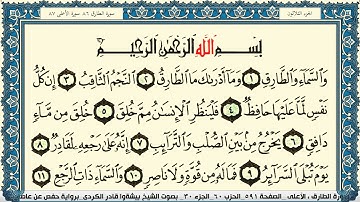 سورة الطارق ٨٦ سورة الأعلى ٨٧
الجزء الثلاثون
بِسْمِ اللَّهِ الرَّحْمَٰنِ الرَّحِيمِ
وَالسَّمَاءِ وَالطَّارِقِ ١ وَمَا أَدْرَاكَ مَا الطَّارِقُ ٢ النَّجْمُ الثَّاقِبُ ٣ إِن كُلُّ
نَفْسٍ لَّمَّا عَلَيْهَا حَافِظٌ ٤ فَلْيَنظُرِ الْإِنسَانُ مِمَّ خُلِقَ ٥ خُلِقَ مِن مَّاءٍ
دَافِقٍ ٦ يَخْرُجُ مِن بَيْنِ الصُّلْبِ وَالتَّرَائِبِ ٧ إِنَّهُ عَلَىٰ رَجْعِهِ لَقَادِرٌ ٨
يَوْمَ تُبْلَى السَّرَائِرُ ٩ فَمَا لَهُ مِن قُوَّةٍ وَلَا نَاصِرٍ ١٠ وَالسَّمَاءِ ذَاتِ الرَّجْعِ ١١
رة الطارق ، الأعلى . الصفحة ٥٩١ . الحزب ٦٠ . الجزء ٣٠ . بصوت الشيخ بيشةوا قادر الكردي . برواية حفص عن عاصم